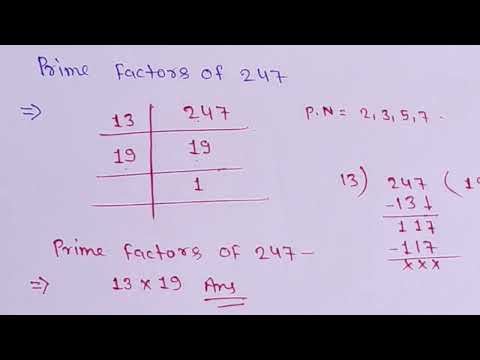 Prime Factors of 247
⇒ 13 | 247
19 | 19
| 1
P.N = 2, 3, 5, 7.
13) 247 (19
-13↓
117
-117
×××
Prime Factors of 247 -
⇒ 13 × 19 Ans